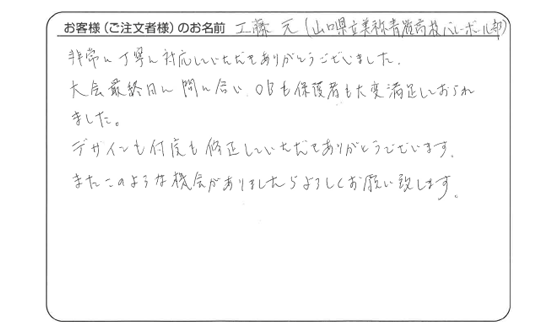 お客様（ご注文者様）のお名前 工藤 元（山口県立美祢青嶺高校バレーボール部）
非常に丁寧に対応していただきありがとうございました。
大会最終日に間に合い、OBも保護者も大変満足しておられ
ました。
デザインも何度も修正していただきありがとうございます。
またこのような機会がありましたらよろしくお願い致します。